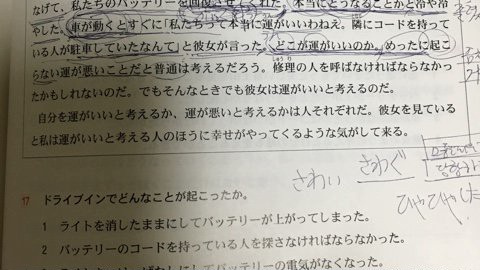 なげて、私たちのバッテリーを回復させてくれた。本当にどうなることかと冷や冷
やした。車が動くとすぐに「私たちって本当に運がいいわねえ。隣にコードを持って
いる人が駐車していたなんて」と彼女が言った。どこが運がいいのか。めったに起こ
らない運が悪いことだと普通は考えるだろう。修理の人を呼ばなければならなかっ
しゅうり
たかもしれないのだ。でもそんなときでも彼女は運がいいと考えるのだ。
自分を運がいいと考えるか、運が悪いと考えるかは人それぞれだ。彼女を見ている
と私は運がいいと考える人のほうに幸せがやってくるような気がして来る。
さわい さわぐ
ひやひやした
17 ドライブインでどんなことが起こったか。
1 ライトを消したままにしてバッテリーが上がってしまった。
2 バッテリーのコードを持っている人を探さなければならなかった。
バッテリーの電気がなくなった。